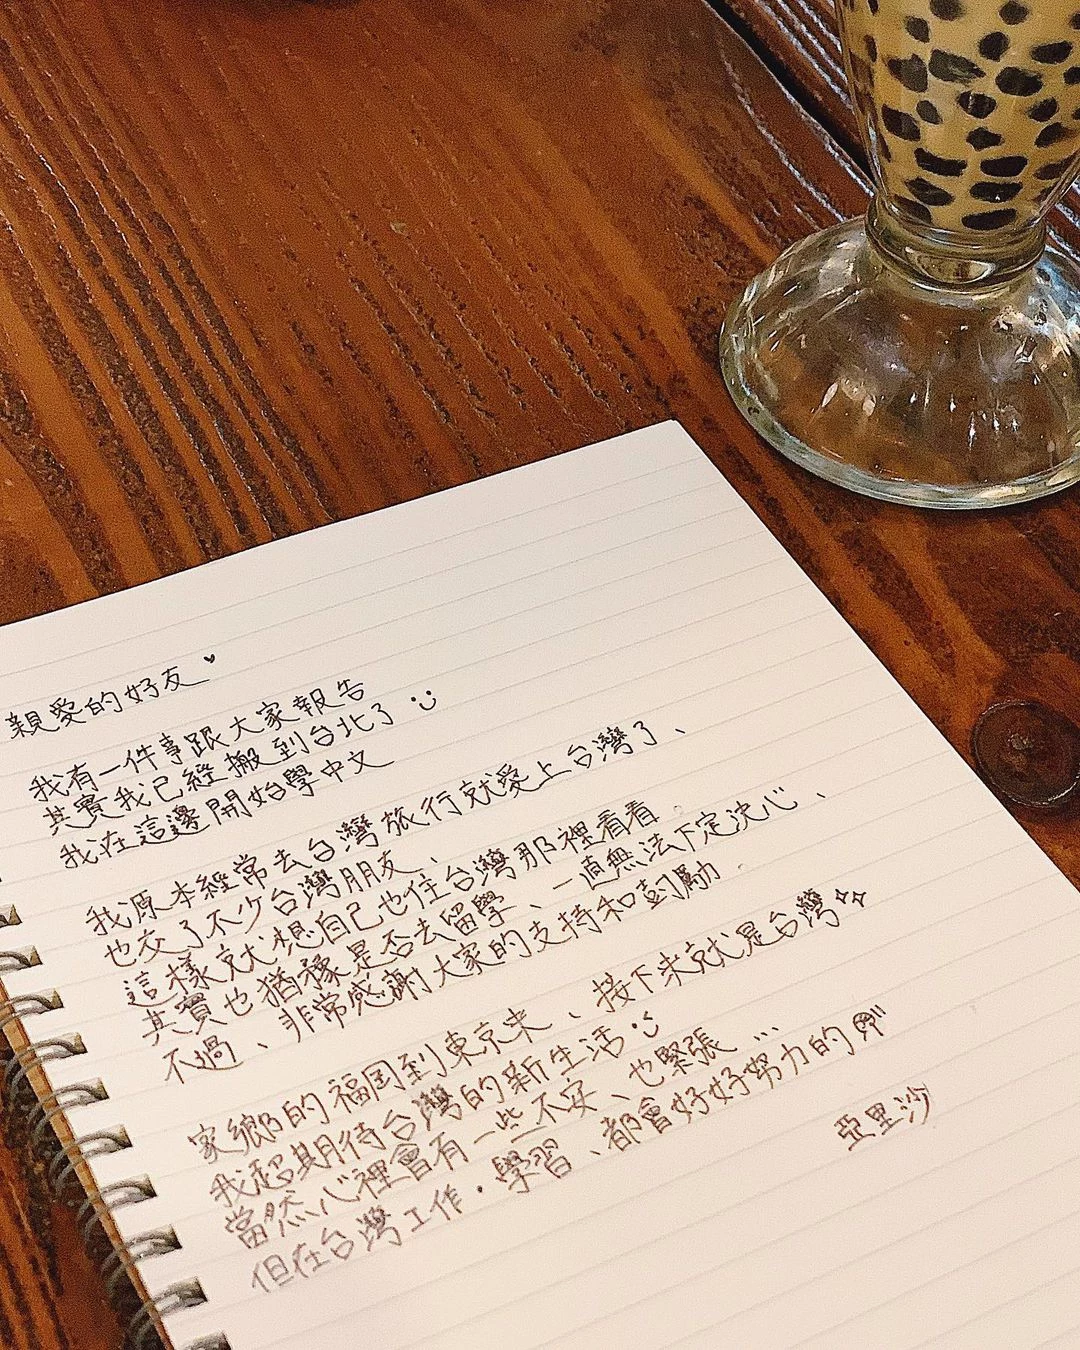 親愛的好友
我有一件事跟大家報告
其實我已經搬到台北了
我在這邊開始學中文
我原本經常去台灣旅行就愛上台灣了、
也交了不少台灣朋友、
這樣就想自己也住台灣那裡看看。
其實也猶豫是否去留學、一直無法下定決心、
不過、非常感謝大家的支持和鼓勵。
家鄉的福岡到東京來、接下來就是台灣
我超期待台灣的新生活
當然心裡會有一些不安、也緊張…
但在台灣工作・學習、都會好好努力的
亞里沙